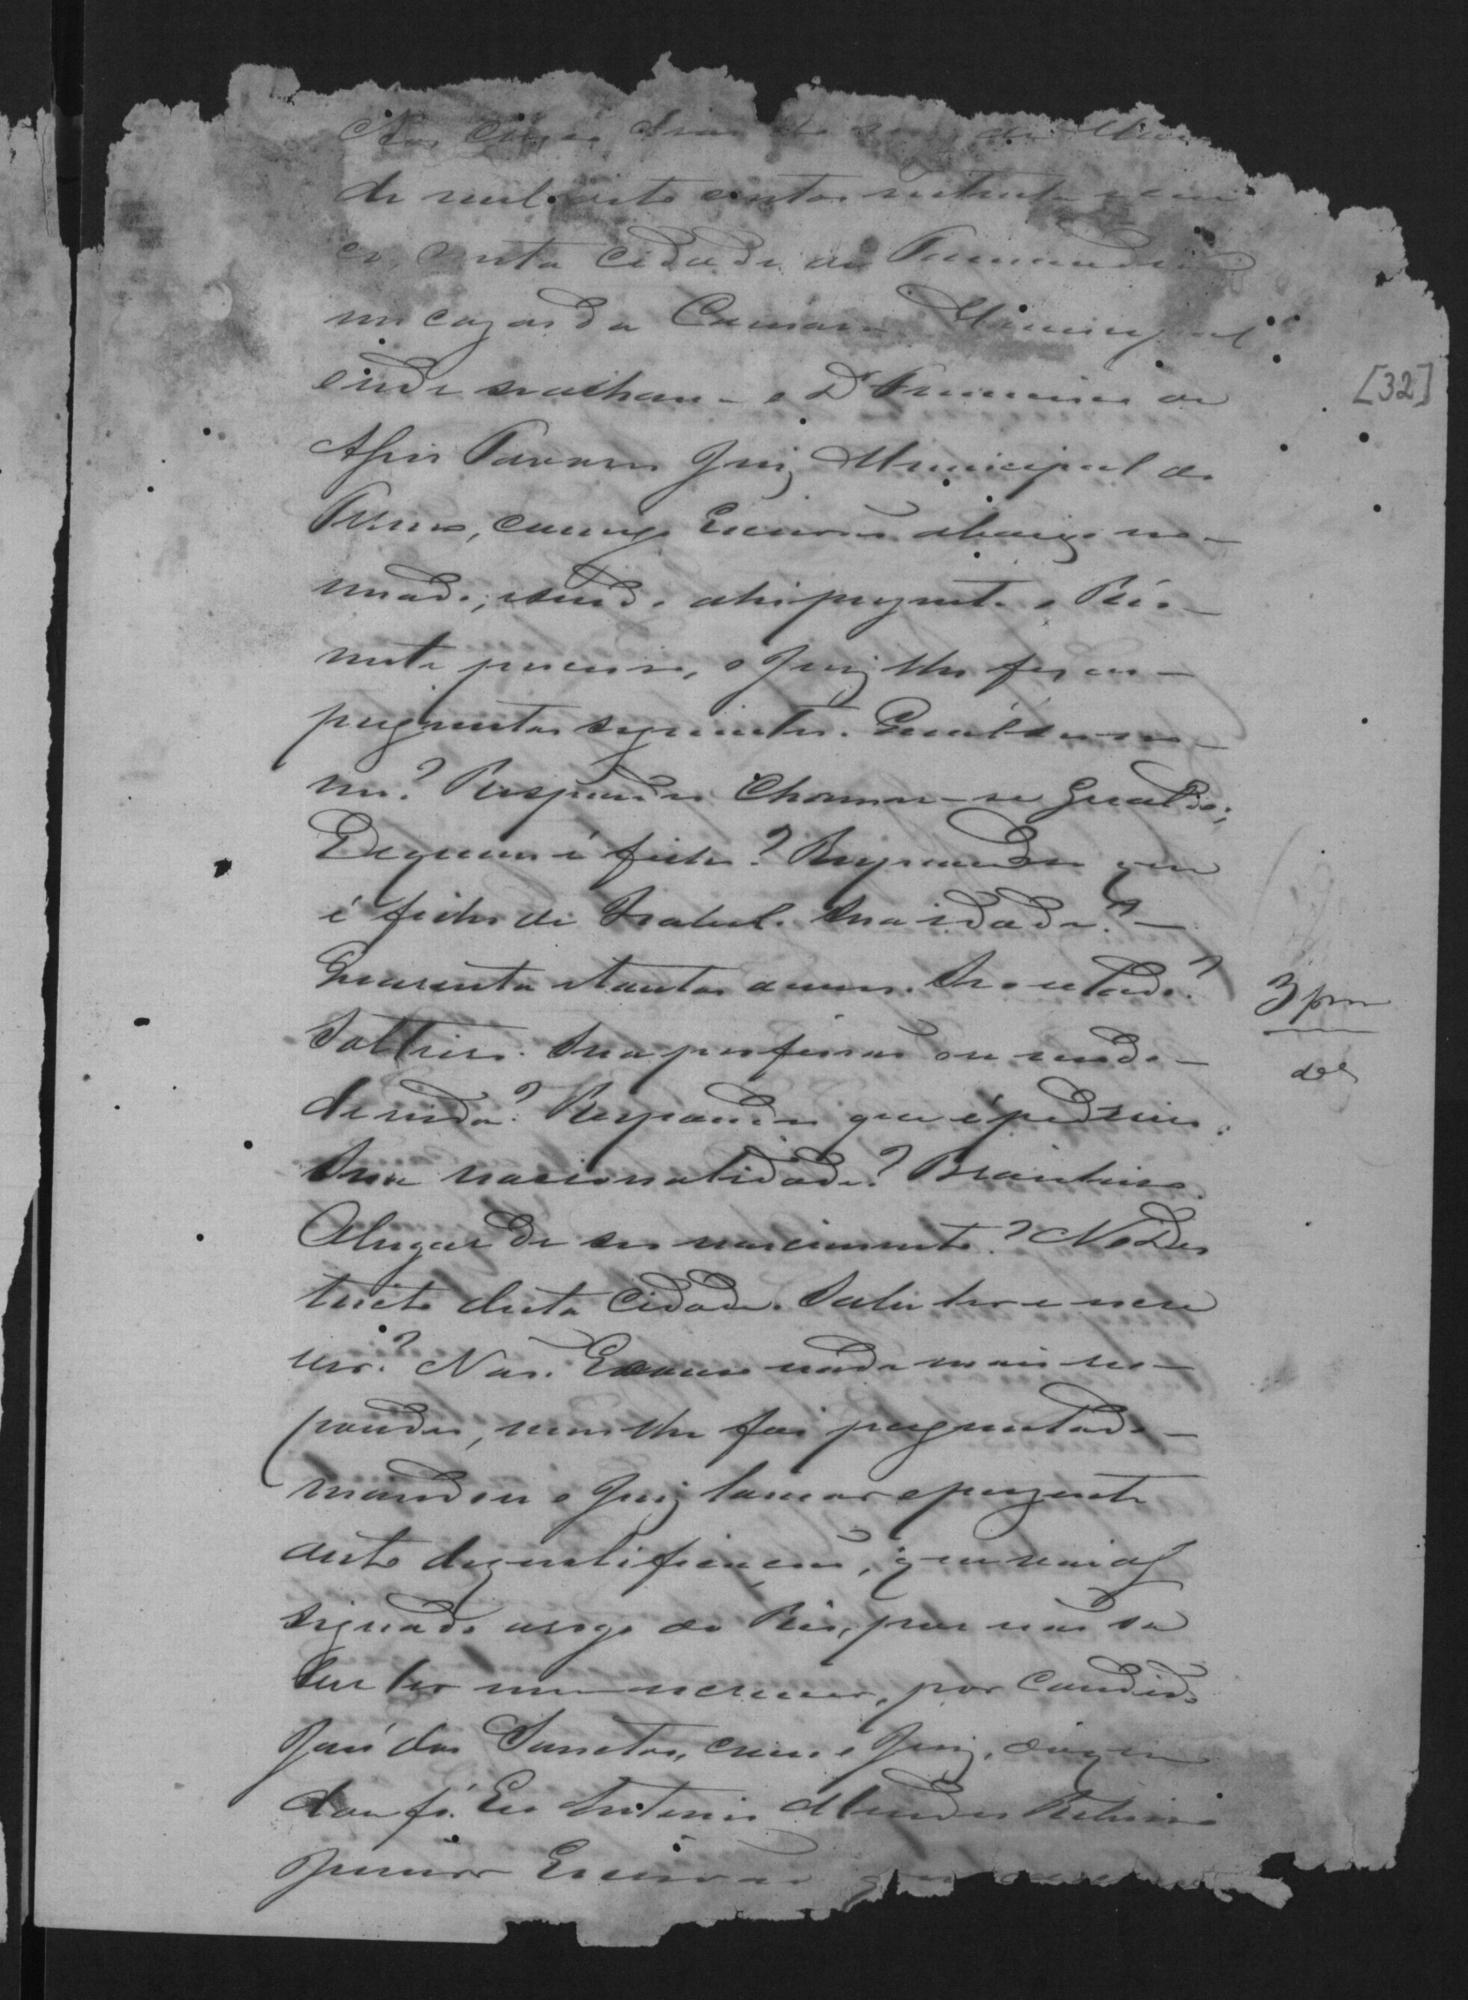 dias do mez de
de mil oito centos setenta e
co, nesta Cidade de Tamanduá
nas cazas da Camara Municipal
onde se achava o Dr Francisco de
Assis Tavares Juiz Municipal do
Termo, comigo Escrivão abaixo no-
mado, sendo ahi prezente o Réo
neste processo, o Juiz lhe fez as
perguntas seguintes. Qual é seu no-
me? Respondeu Chamar-se Geraldo;
De quem é filho? Respondeu que
é filho de Izabel. Sua idade?
Quarenta e tantos annos. Seo estado?
Solteiro. Sua profissão ou modo
de vida? Respondeu que é pedreiro.
Sua nacionalidade? Brazileiro.
O lugar de seu nascimento? No Des
tricto desta Cidade. Sabe ler e escre
ver? Não. E como nada mais res-
pondeu, nem lhe foi perguntado
mandou o Juiz lavrar o prezente
auto de qualificação, que vai as
signado a rogo do Réo, por não sa
ber ler nem escrever, por Candido
José dos Santos, com o Juiz, do que
dou fé. Eu Antonio Mendes Ribeiro
Junior Escrivão que
[32]
3 pm
dos